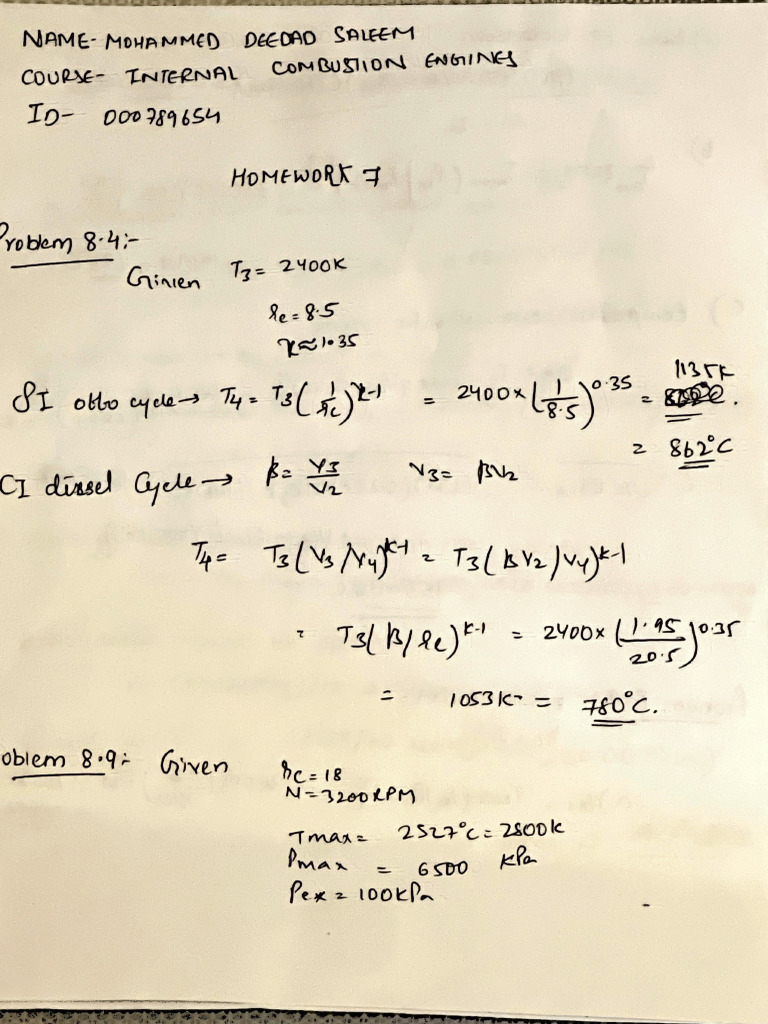 NAME- MOHAMMED DEEDAD SALEEM
COURSE- INTERNAL COMBUSTION ENGINES
ID- 000789654
HOMEWORK 7
Problem 8.4:-
Given T3 = 2400K
rc = 8.5
k ≈ 1.35
SI otto cycle → T4 = T3 (1/rc)^k-1 = 2400 x (1/8.5)^0.35 = 1135K.
= 862°C
CI dissel Cycle → β = V3/V2 V3 = βV2
T4 = T3 (V3/V4)^k-1 = T3 (βV2/V4)^k-1
= T3 (β/rc)^k-1 = 2400 x (1.95/20.5)^0.35
= 1053K = 780°C.
oblem 8.9:- Given rc = 18
N = 3200RPM
Tmax = 2527°C = 2800K
Pmax = 6500 kPa
Pex = 100kPa